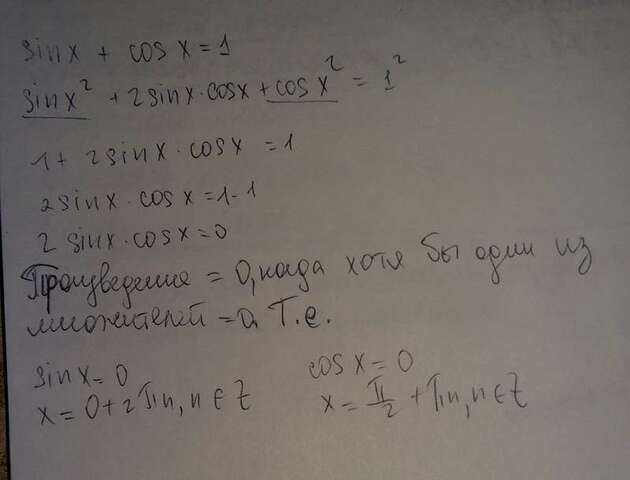 sinx + cos x = 1
sinx² + 2sinx·cosx + cosx² = 1²
1 + 2sinx·cosx = 1
2sinx·cosx = 1-1
2 sinx·cosx = 0
Произведение = 0, когда хотя бы один из
множителей = 0. Т.е.
sinx = 0 cosx = 0
x = 0 + 2πn, n ∈ Z x = π/2 + πn, n ∈ Z